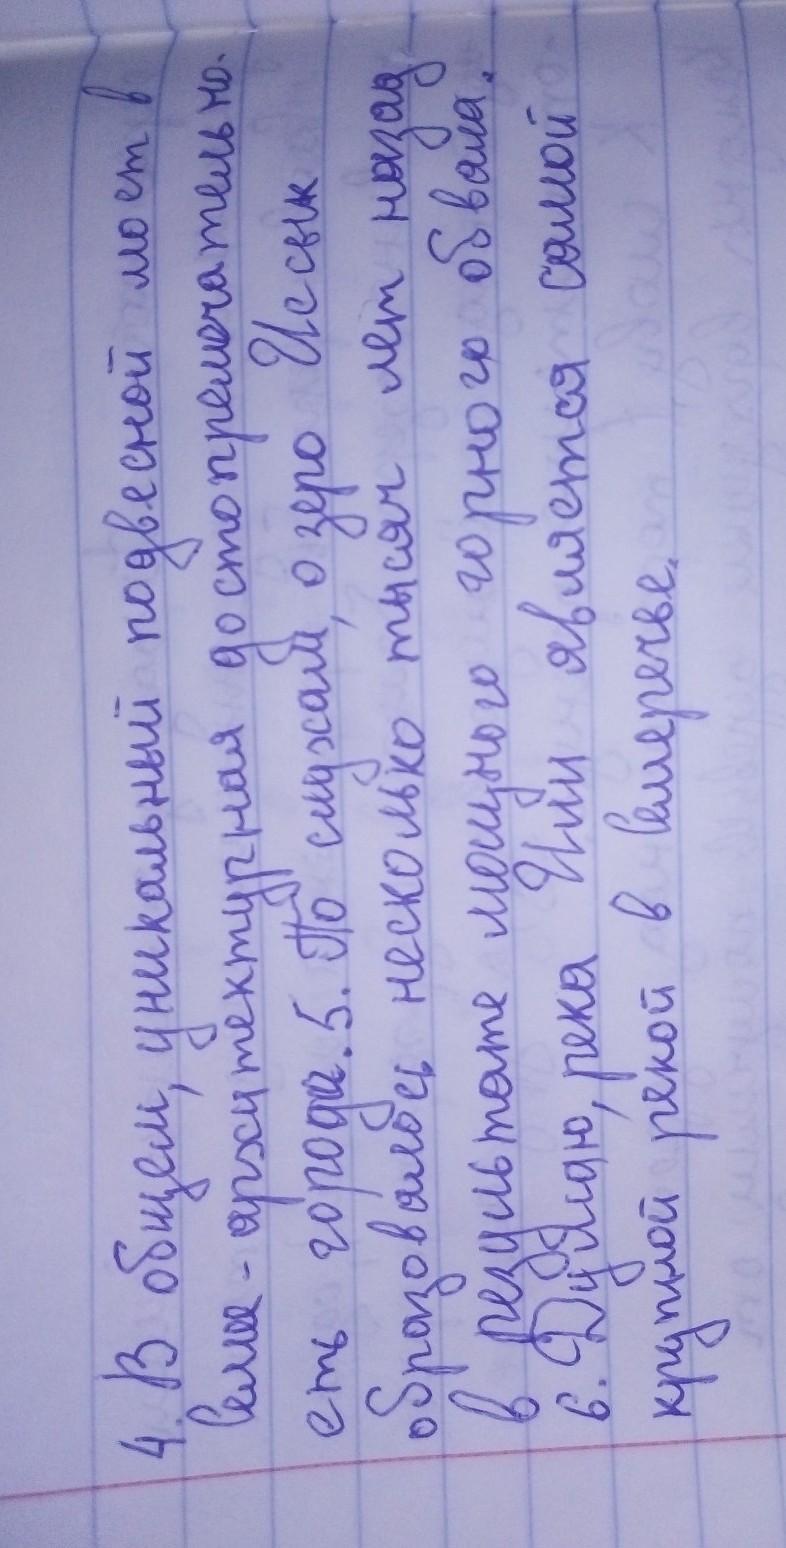 4. В общем, уникальный подвесной мост в
Семее - архитектурная достопремечательно-
сть города. 5. По слухам, озеро Иссык
образовалось несколько тысяч лет назад
в результате мощного горного обвала.
6. Думаю, река Или является самой
крупной рекой в Семеречье.